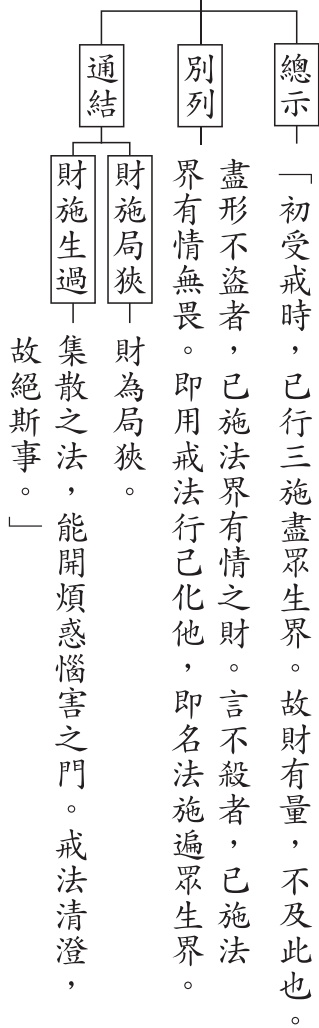 總示
「初受戒時，已行三施盡眾生界。故財有量，不及此也。
別列
盡形不盜者，已施法界有情之財。言不殺者，已施法
界有情無畏。即用戒法行己化他，即名法施遍眾生界。
通結
財施局狹
財為局狹。
財施生過
集散之法，能開煩惑惱害之門。戒法清澄，
故絕斯事。」